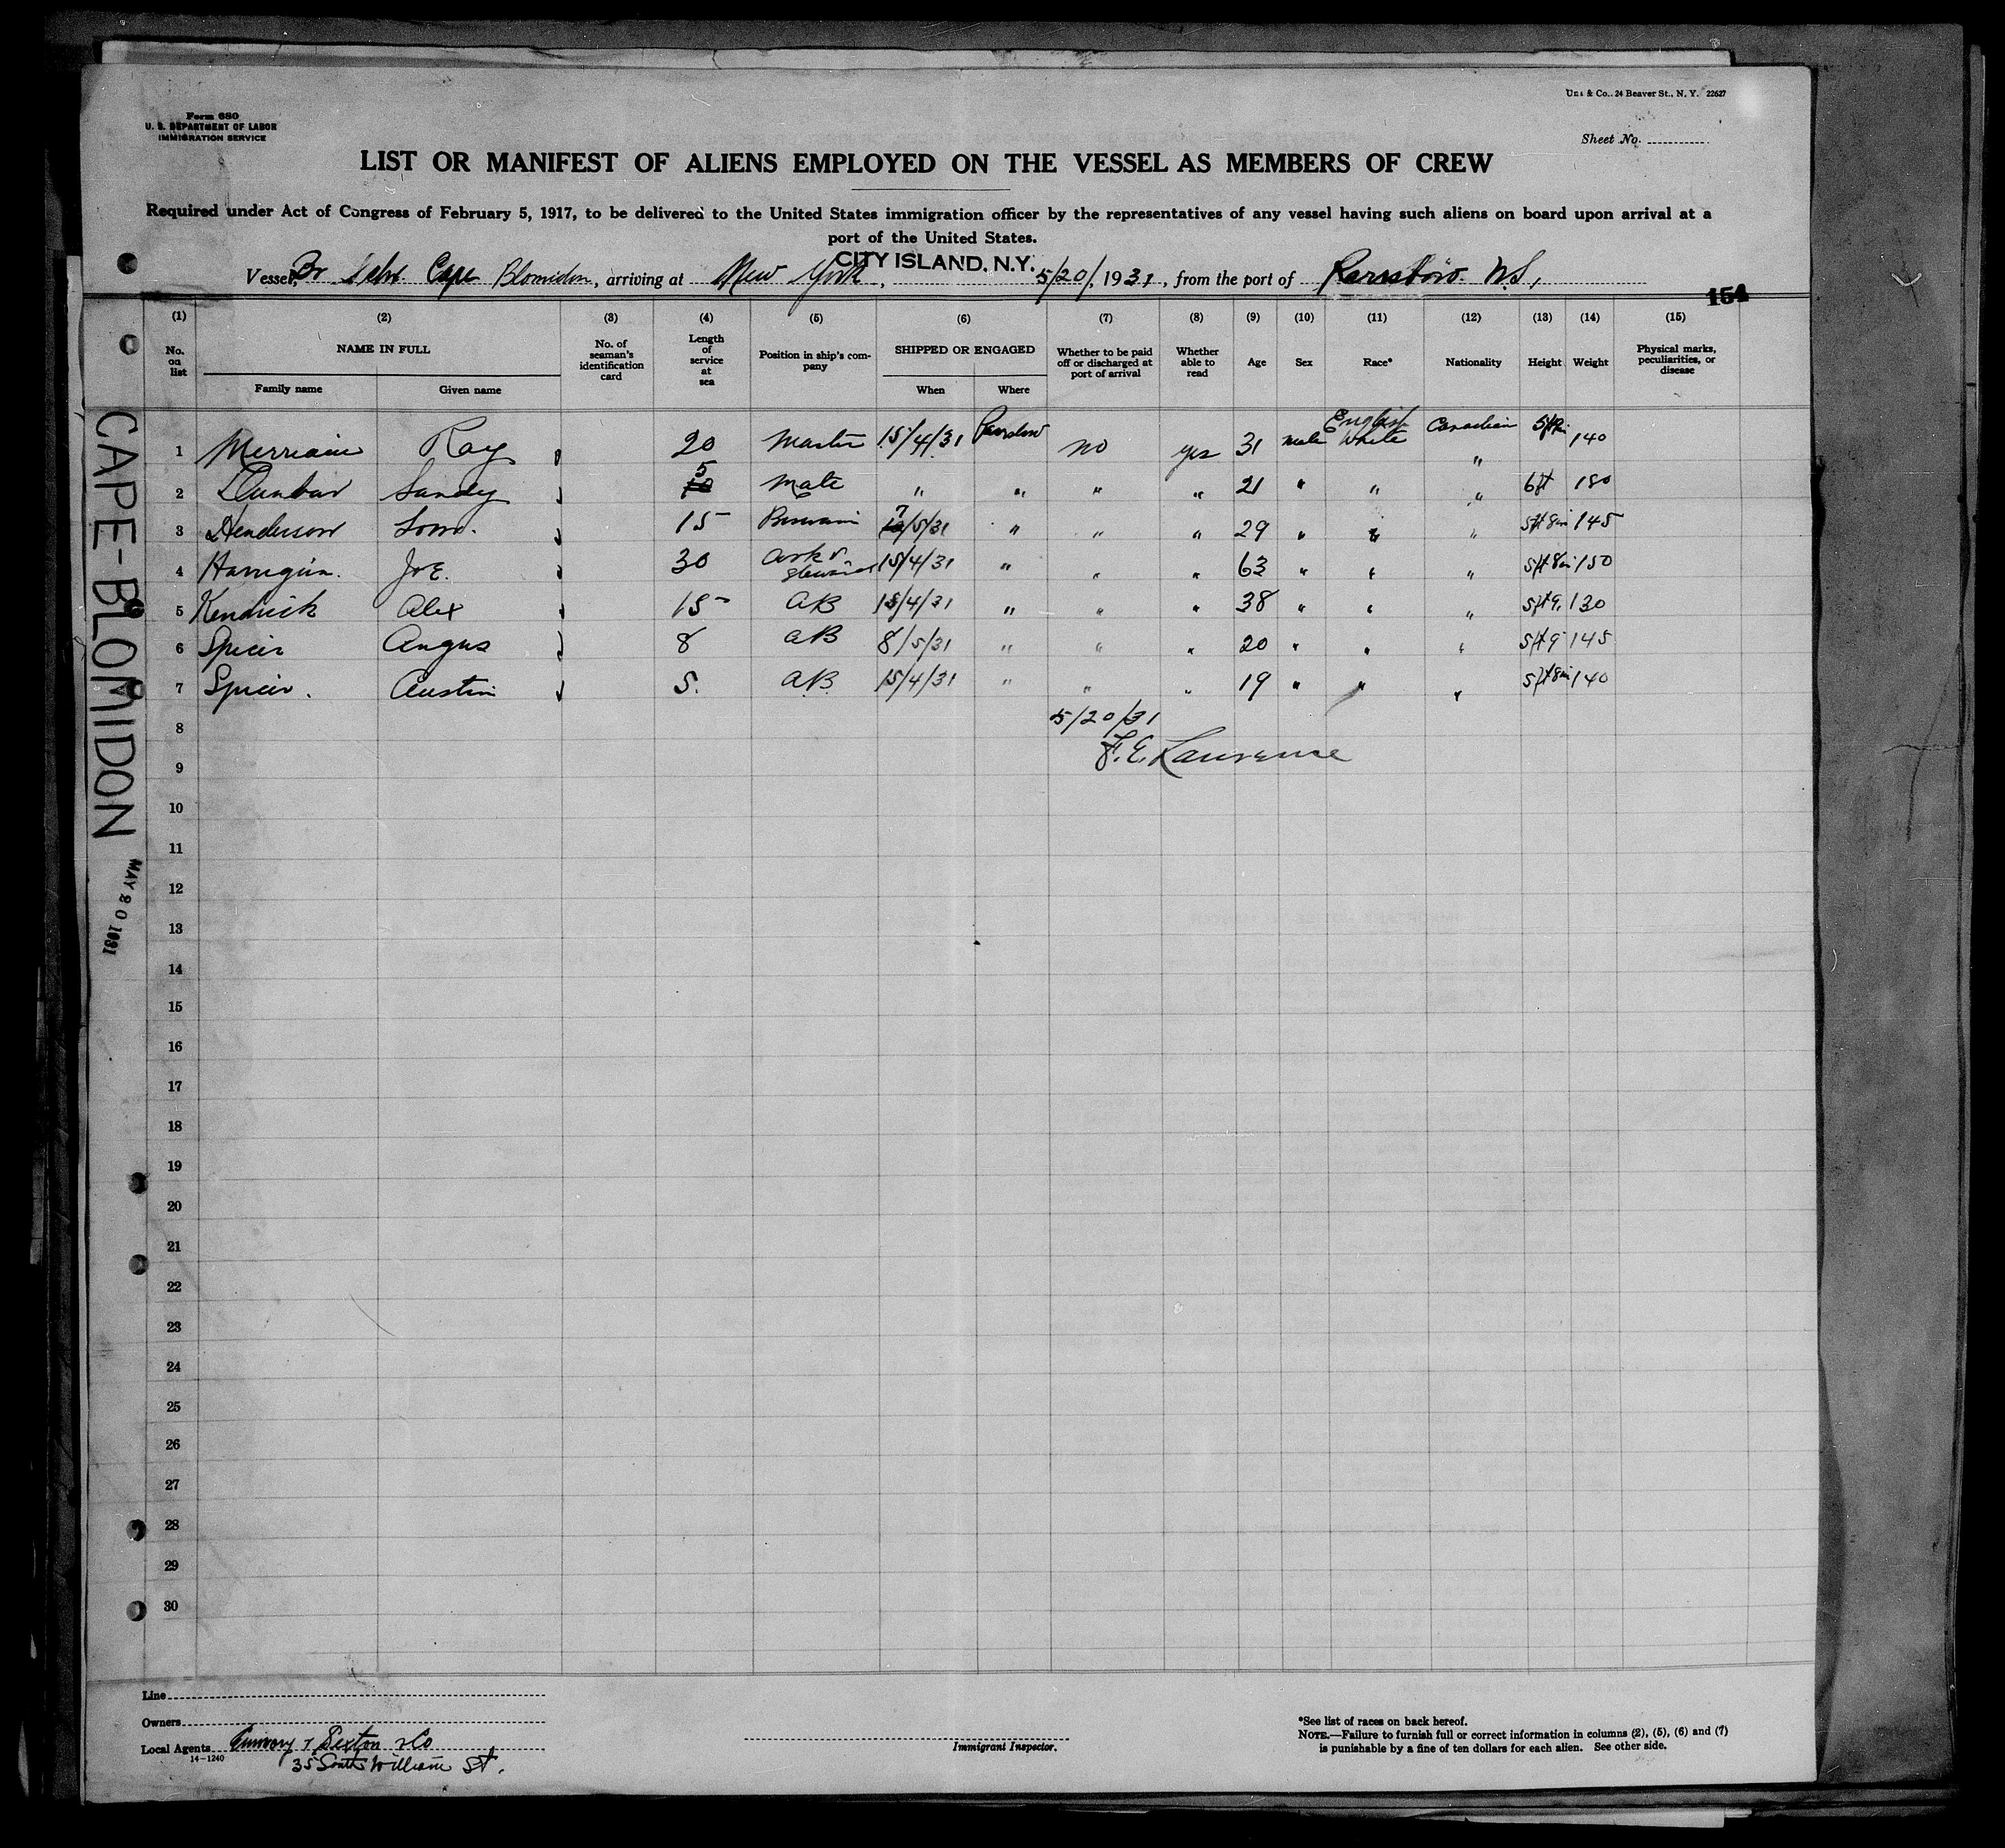 Form 680
U. S. DEPARTMENT OF LABOR
IMMIGRATION SERVICE
& Co., 24 Beaver St., N. Y. 22627
Sheet No.
LIST OR MANIFEST OF ALIENS EMPLOYED ON THE VESSEL AS MEMBERS OF CREW
Required under Act of Congress of February 5, 1917, to be delivered to the United States immigration officer by the representatives of any vessel having such aliens on board upon arrival at a
port of the United States.
CITY ISLAND, N.Y.
Vessel, Br Schr Cape Blomidon, arriving at New York, 5/20/, 1931, from the port of N.S,
154
(1) (2) (3) (4) (5) (6) (7) (8) (9) (10) (11) (12) (13) (14) (15)
No. on list NAME IN FULL Family name Given name No. of seaman's identification card Length of service at sea Position in ship's company SHIPPED OR ENGAGED When Where Whether to be paid off or discharged at port of arrival Whether able to read Age Sex Race* Nationality Height Weight Physical marks, peculiarities, or disease
1 Merriam Ray 20 Master 15/4/31 no yes 31 male English White Canadian 140
2 Dunbar Sandy 5 mate " " " " 21 " " " 6ft 180
3 Henderson 15 7/5/31 " " " 29 " " " 5ft 8in 145
4 Joe. 30 cook & steward 15/4/31 " " " 63 " " " 5ft 8in 150
5 Kendrick Alex 15 AB 15/4/31 " " " 38 " " " 5ft 9. 130
6 Spicer Angus 8 AB 8/5/31 " " " 20 " " " 5ft 9 145
7 Spicer. Austin 5. A.B. 15/4/31 " " " 19 " " " 5ft 8in 140
8 5/20/31
F. E. Lawrence
9
10
11
12
13
14
15
16
17
18
19
20
21
22
23
24
25
26
27
28
29
30
CAPE-BLOMIDON
MAY 20 1931
Line
Owners
Local Agents & Sexton & Co
14-1240
35 South William St.
Immigrant Inspector.
*See list of races on back hereof.
NOTE.—Failure to furnish full or correct information in columns (2), (5), (6) and (7)
is punishable by a fine of ten dollars for each alien. See other side.